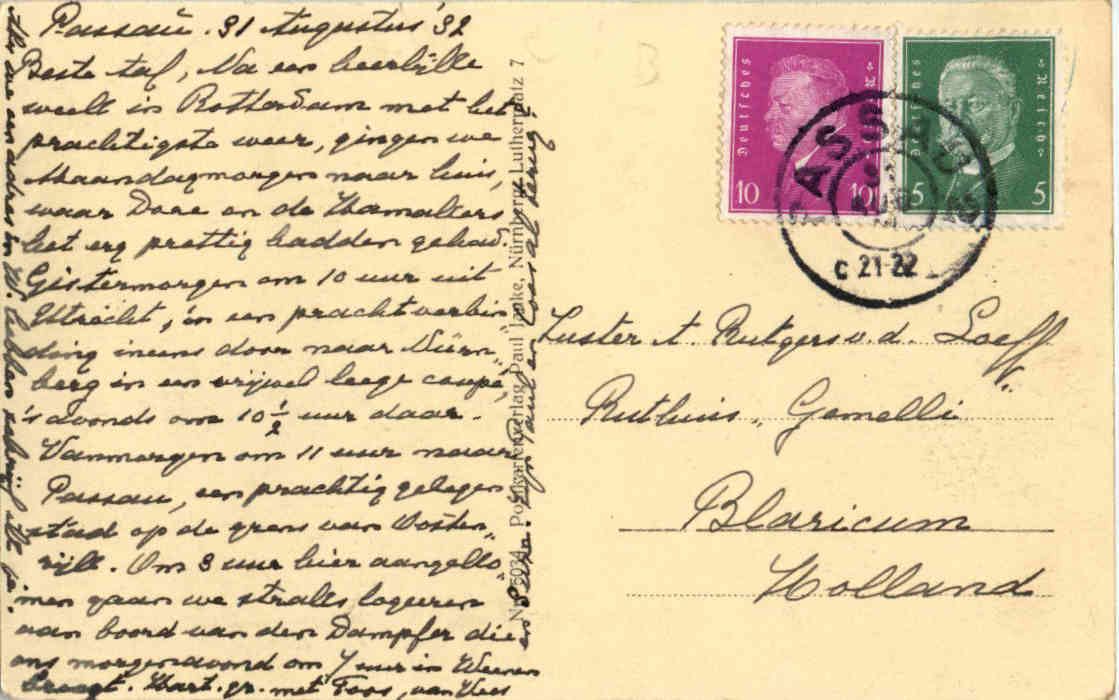 Passau. 31 Augustus '32
Beste taf, Na een heerlijke
week in Rotterdam met het
prachtigste weer, gingen we
Maandagmorgen naar huis,
waar Dore en de Hamalters
het erg prettig hadden gehad.
Gistermorgen om 10 uur uit
Utrecht, in een pracht verbin
ding ineens door naar Nürn„
berg in een vrijwel leege coupé,
's avonds om 10 1/2 uur daar.
Vanmorgen om 11 uur naar
Passau, een prachtig gelegen
stad op de grens van Oosten„
rijk. Om 3 uur hier aangeko
men gaan we straks logeeren
aan boord van den Dampfer die
ons morgenavond om 7 uur in Weenen
brengt. Hart. gr. met Toos, van Kees
en
Als we een adres in W. hebben schrijf ik je.
Nr. 5034 Postkartenverlag Paul Janke, Nürnberg, Lutherplatz 7
Deutsches Reich
10 10
Deutsches Reich
5 5
PASSAU
c 21-22
Zuster t. Rutgers v. d. Loeff
Ruthuis, Gemelli
Blaricum
Holland